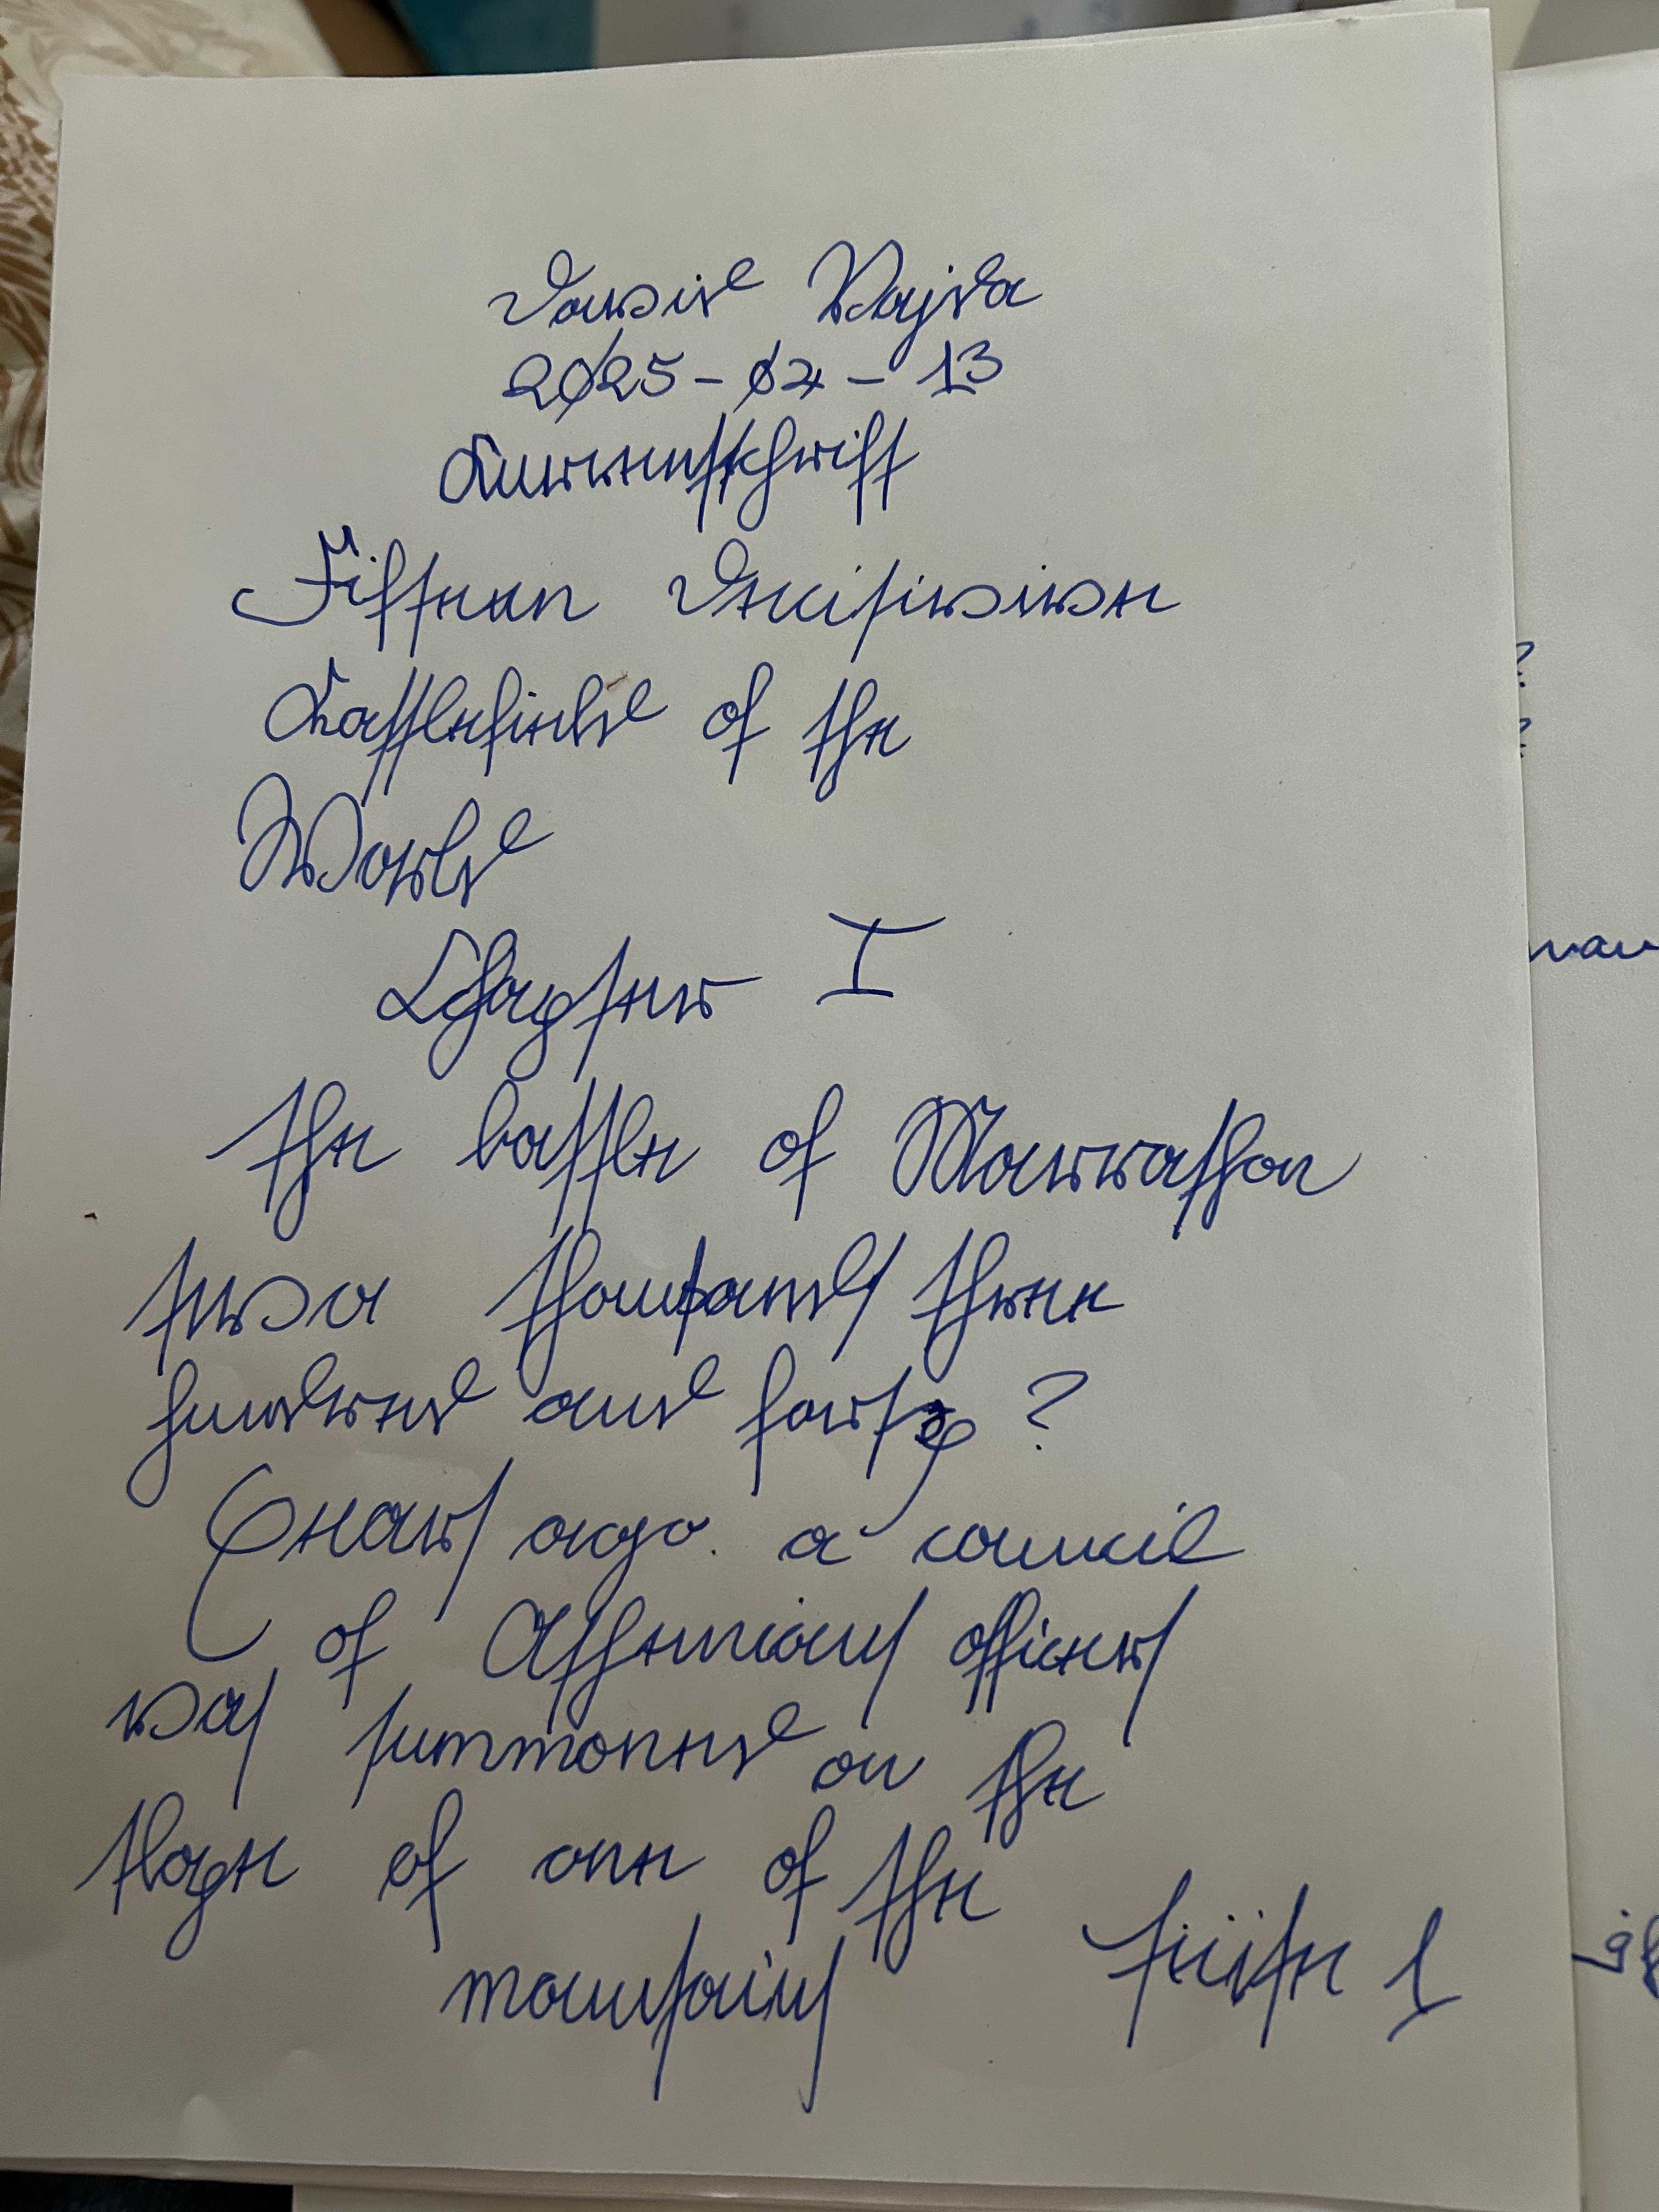 David Vajda
2025-07-13
Kurrentschrift
Fifteen Decisive
Battlefield of the
World
Chapter I
the battle of Marrathon
two thousands three
hundred and forty ?
Years ago. a council
of Athenians officers
was summoned on the
slope of one of the
mountains Seite 1